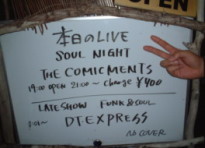 OPEN
本日のLIVE
SOUL NIGHT
THE COMICMENTS
19:00 OPEN 21:00～ charge ¥400
LATE SHOW FUNK & SOUL
DT EXPRESS
NO COVER